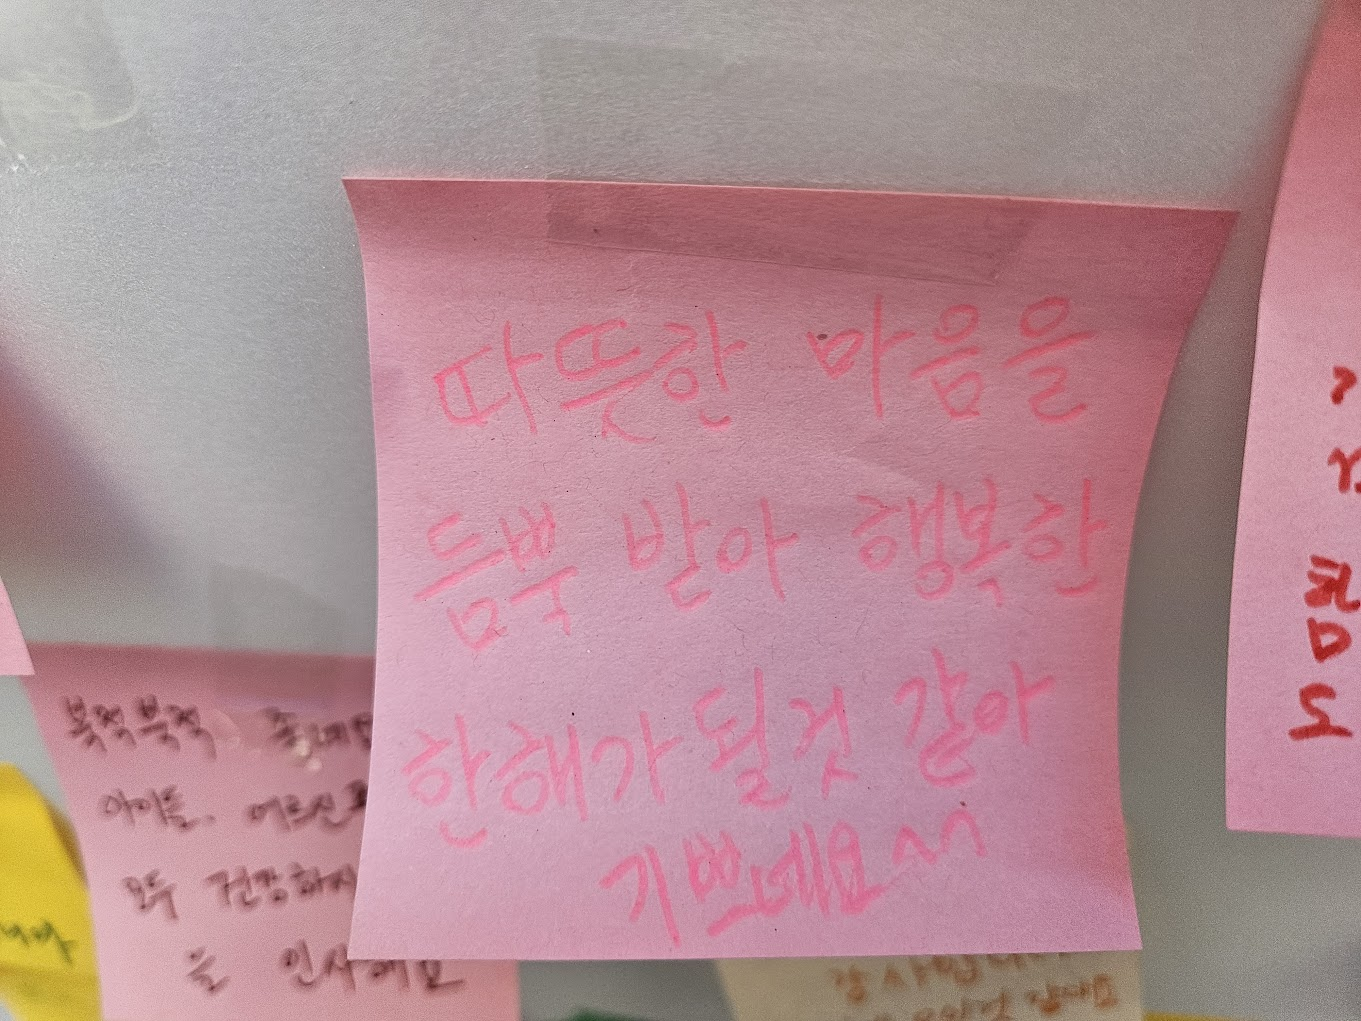 따뜻한 마음을
듬뿍 받아 행복한
한해가 될것 같아
기쁘네요~~
북적북적
아이들, 어르신
모두 건강하시
을 인사해요
감사합니다